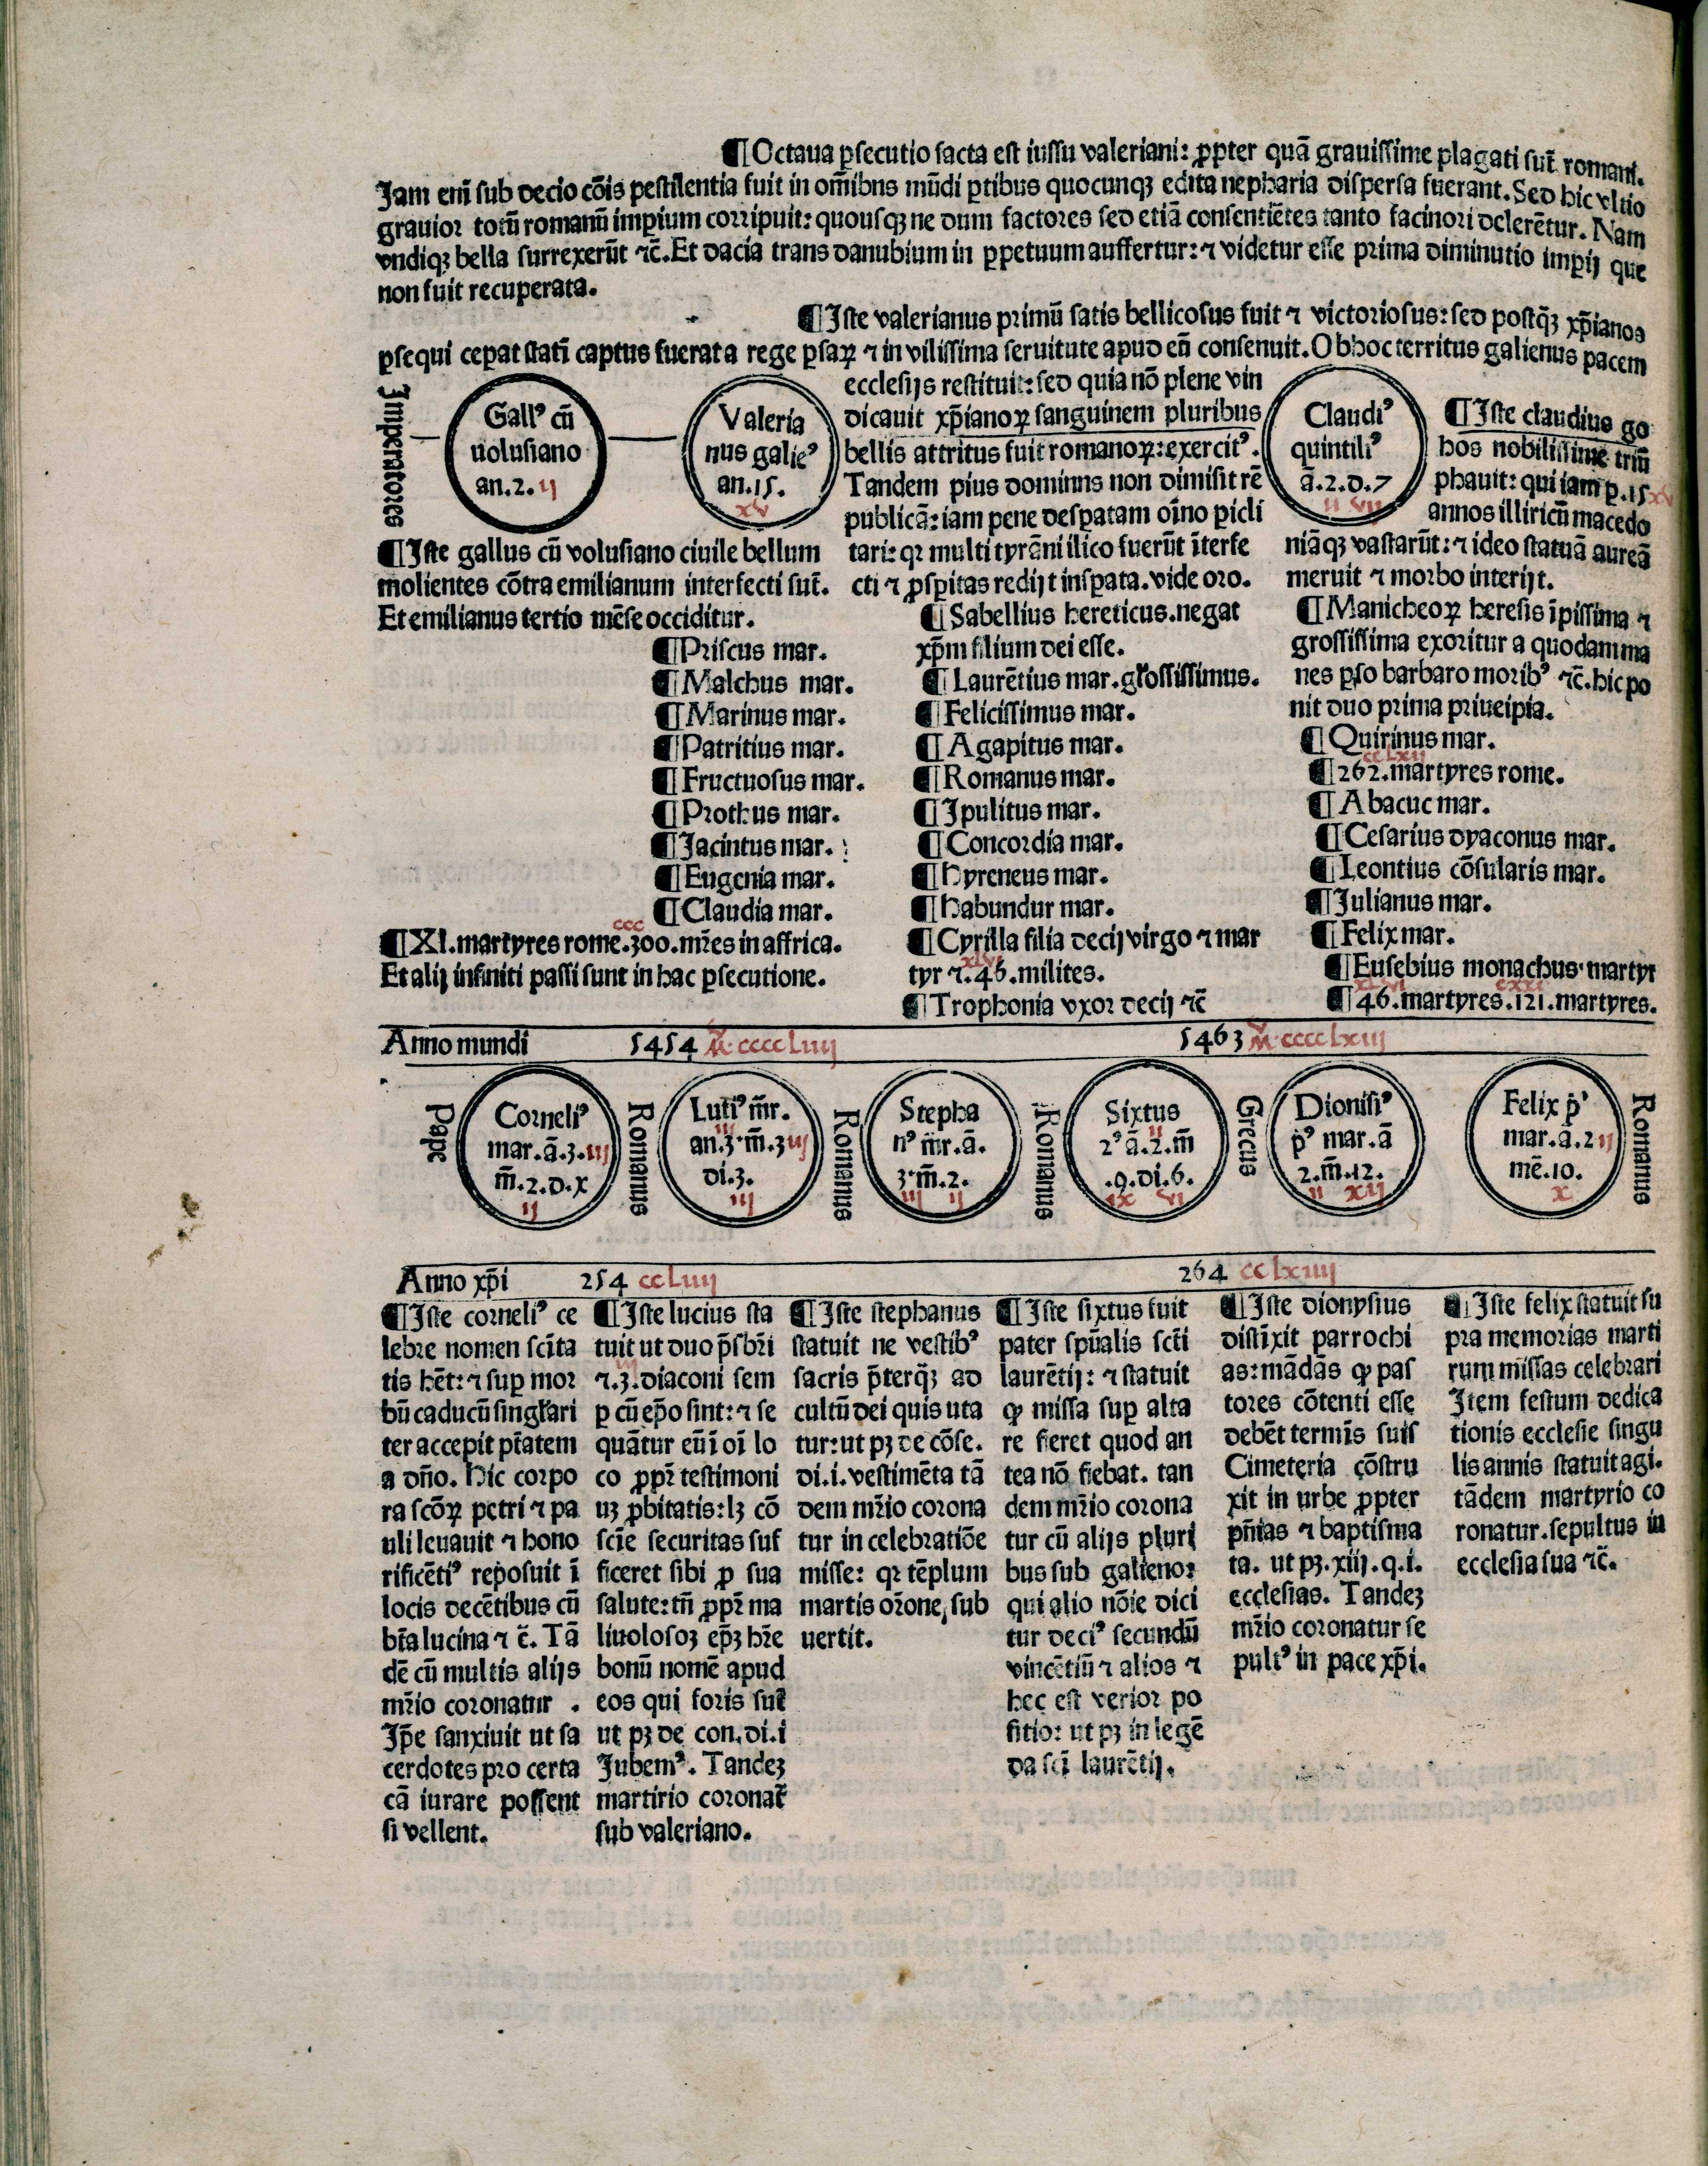 ¶Octaua ꝑsecutio facta est iussu valeriani: ꝓpter quā grauissime plagati sūt romani.
Jam eni̅ sub decio cōis pestilentia fuit in om̅ibns mūdi ꝑtibus quocunqꝫ edita nepharia dispersa fuerant. Sed hic vltio
grauior totū romanū imꝑium corripuit: quousqꝫ ne dum factores sed etiā consentiētes tanto facinori delerētur. Nam
vndiqꝫ bella surrexerūt ⁊c̄. Et dacia trans danubium in ꝑpetuum auffertur: ⁊ videtur esse prima diminutio imꝑij que
non fuit recuperata.
¶Iste valerianus primū satis bellicosus fuit ⁊ victoriosus: sed postqꝫ̄ xp̄ianos
ꝑsequi cepat stati̅ captus fuerat a rege ꝑsaꝝ ⁊ in vilissima seruitute apud eū consenuit. Ob hoc territus galienus pacem
ecclesijs restituit: sed quia nō plene vin
dicauit xp̄ianoꝝ sanguinem pluribus
bellis attritus fuit romanoꝝ: exercitꝰ.
Tandem pius dominns non dimisit rē
publicā: iam pene desꝑatam oi̅no ꝑicli
tari: qꝛ multi tyrāni ilico fuerūt i̅terfe
cti ⁊ ꝓsꝑitas redijt insꝑata. vide oro.
Imperatores
Gallꝰ cū
uolusiano
an. 2. ij
Valeria
nus galieꝰ
an. 15.
xv
Claudiꝰ
quintiliꝰ
ā. 2. d. 7
ii vij
¶Iste claudius go
hos nobilissime triū
phauit: qui iam ꝑ. 15 xv
annos illiricū macedo
niāqꝫ vastarūt: ⁊ ideo statuā aureā
meruit ⁊ morbo interijt.
¶Iste gallus cū volusiano ciuile bellum
molientes cōtra emilianum interfecti sūt.
Et emilianus tertio mēse occiditur.
¶Priscus mar.
¶Malchus mar.
¶Marinus mar.
¶Patritius mar.
¶Fructuosus mar.
¶Prothus mar.
¶Jacintus mar.
¶Eugenia mar.
¶Claudia mar.
ccc
¶XI. martyres rome. 300. mr̄es in affrica.
Et alij infiniti passi sunt in hac ꝑsecutione.
¶Sabellius hereticus. negat
xp̄m filium dei esse.
¶Laurētius mar. gl̄osissimus.
¶Felicissimus mar.
¶Agapitus mar.
¶Romanus mar.
¶Ipulitus mar.
¶Concordia mar.
¶Hyreneus mar.
¶Habundur mar.
¶Cyrilla filia decij virgo ⁊ mar
xlvi
tyr ⁊. 46. milites.
¶Trophonia vxor decij ⁊c̄
¶Manicheoꝝ heresis i̅pissima ⁊
grossissima exoritur a quodam ma
nes ꝑso barbaro moribꝰ ⁊c̄. hic po
nit duo prima priueipia.
¶Quirinus mar.
cclxij
¶262. martyres rome.
¶Abacuc mar.
¶Cesarius dyaconus mar.
¶Leontius cōsularis mar.
¶Julianus mar.
¶Felix mar.
¶Eusebius monachus martyr
xlvi cxxi
¶46. martyres. 121. martyres.
Anno mundi 5454 M. ccccLiiij 5463 M. cccclxiij
Pape
Corneliꝰ
mar. ā. 3. iij
m̄. 2. d. x
ij
Romanus
Lutiꝰ mr̄.
iij
an. 3. m̄. 3 iij
di. 3.
iij
Romanus
Stepha
nꝰ mr̄. ā.
3. m̄. 2.
iij ij
Romanus
Sixtus
ii
2ꝰ ā. 2. m̄
.9. di. 6.
ix vi
Grecus
Dionisiꝰ
p̄ꝰ mar. ā
2. m̄. 12.
ii xij
Felix p̄ꝰ
mar. ā. 2 ij
mē. 10.
x
Romanus
Anno xp̄i 254 ccLiiij 264 cclxiiij
¶Iste corneliꝰ ce
lebre nomen sci̅ta
tis hēt: ⁊ suꝑ mor
bū caducū singl̄ari
ter accepit pt̄atem
a dn̄o. Hic corpo
ra scōꝝ petri ⁊ pa
uli leuauit ⁊ hono
rificētiꝰ reposuit i̅
locis decētibus cū
bt̄a lucina ⁊ c̄. Tā
dē cū multis alijs
mr̄io coronatur .
Ip̄e sanxiuit ut sa
cerdotes pro certa
cā iurare possent
si vellent.
¶Iste lucius sta
tuit ut duo p̄sbr̄i
iij
⁊. 3. diaconi sem
ꝑ cū ep̄o sint: ⁊ se
quātur eū i̅ oi̅ lo
co ꝓpꝛ̄ testimoni
uꝫ ꝓbitatis: lꝫ cō
sci̅e securitas suf
ficeret sibi ꝓ sua
salute: tn̄ ꝓpꝛ̄ ma
liuolosoꝫ ep̄ꝫ hr̄e
bonū nomē apud
eos qui foris sut̄
ut pꝫ de con. di. i
Jubemꝰ. Tandeꝫ
martirio coronat̄
sub valeriano.
¶Iste stephanus
statuit ne vestibꝰ
sacris p̄terqꝫ̄ ad
cultū dei quis uta
tur: ut pꝫ de cōse.
di. i. vestimēta tā
dem mr̄io corona
tur in celebratiōe
misse: qꝛ tēplum
martis or̄one, sub
uertit.
¶Iste sixtus fuit
pater spūalis scti̅
laurētij: ⁊ statuit
ꝙ missa suꝑ alta
re fieret quod an
tea nō fiebat. tan
dem mr̄io corona
tur cū alijs pluri
bus sub galieno:
qui alio nōie dici
tur deciꝰ secundū
vincētiū ⁊ alios ⁊
hec est verior po
sitio: ut pꝫ in legē
da sci̅ laurētij.
¶Iste dionysius
disti̅xit parrochi
as: mādās ꝙ pas
tores cōtenti esse
debēt termi̅s suis
Cimeteria cōstru
xit in urbe ꝓpter
pn̄ias ⁊ baptisma
ta. ut pꝫ. xiij. q. i.
ecclesias. Tandeꝫ
mr̄io coronatur se
pultꝰ in pace xp̄i.
¶Iste felix statuit su
pra memorias marti
rum missas celebrari
Item festum dedica
tionis ecclesie singu
lis annis statuit agi.
tādem martyrio co
ronatur. sepultus in
ecclesia sua ⁊c̄.